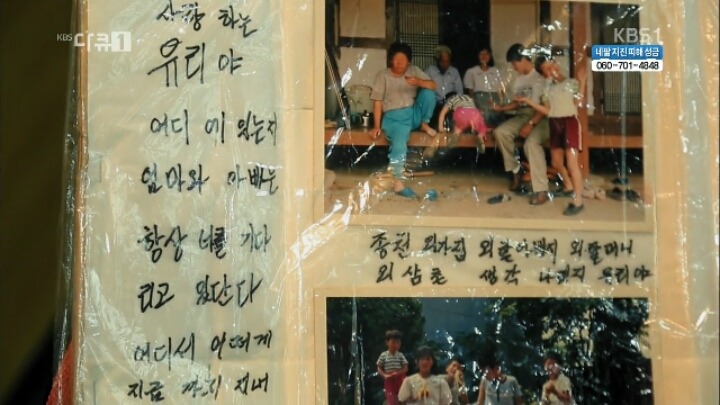 KBS 다큐1
KBS1
네팔 지진피해 성금
060-701-4848
사랑 하는
유리야
어디 에 있는지
엄마와 아빠는
항상 너를 기다
리고 있단다
어디서 어떠게
지금
외가집 외할아버지 외할머니
외삼촌 생각 나겠지 유리야